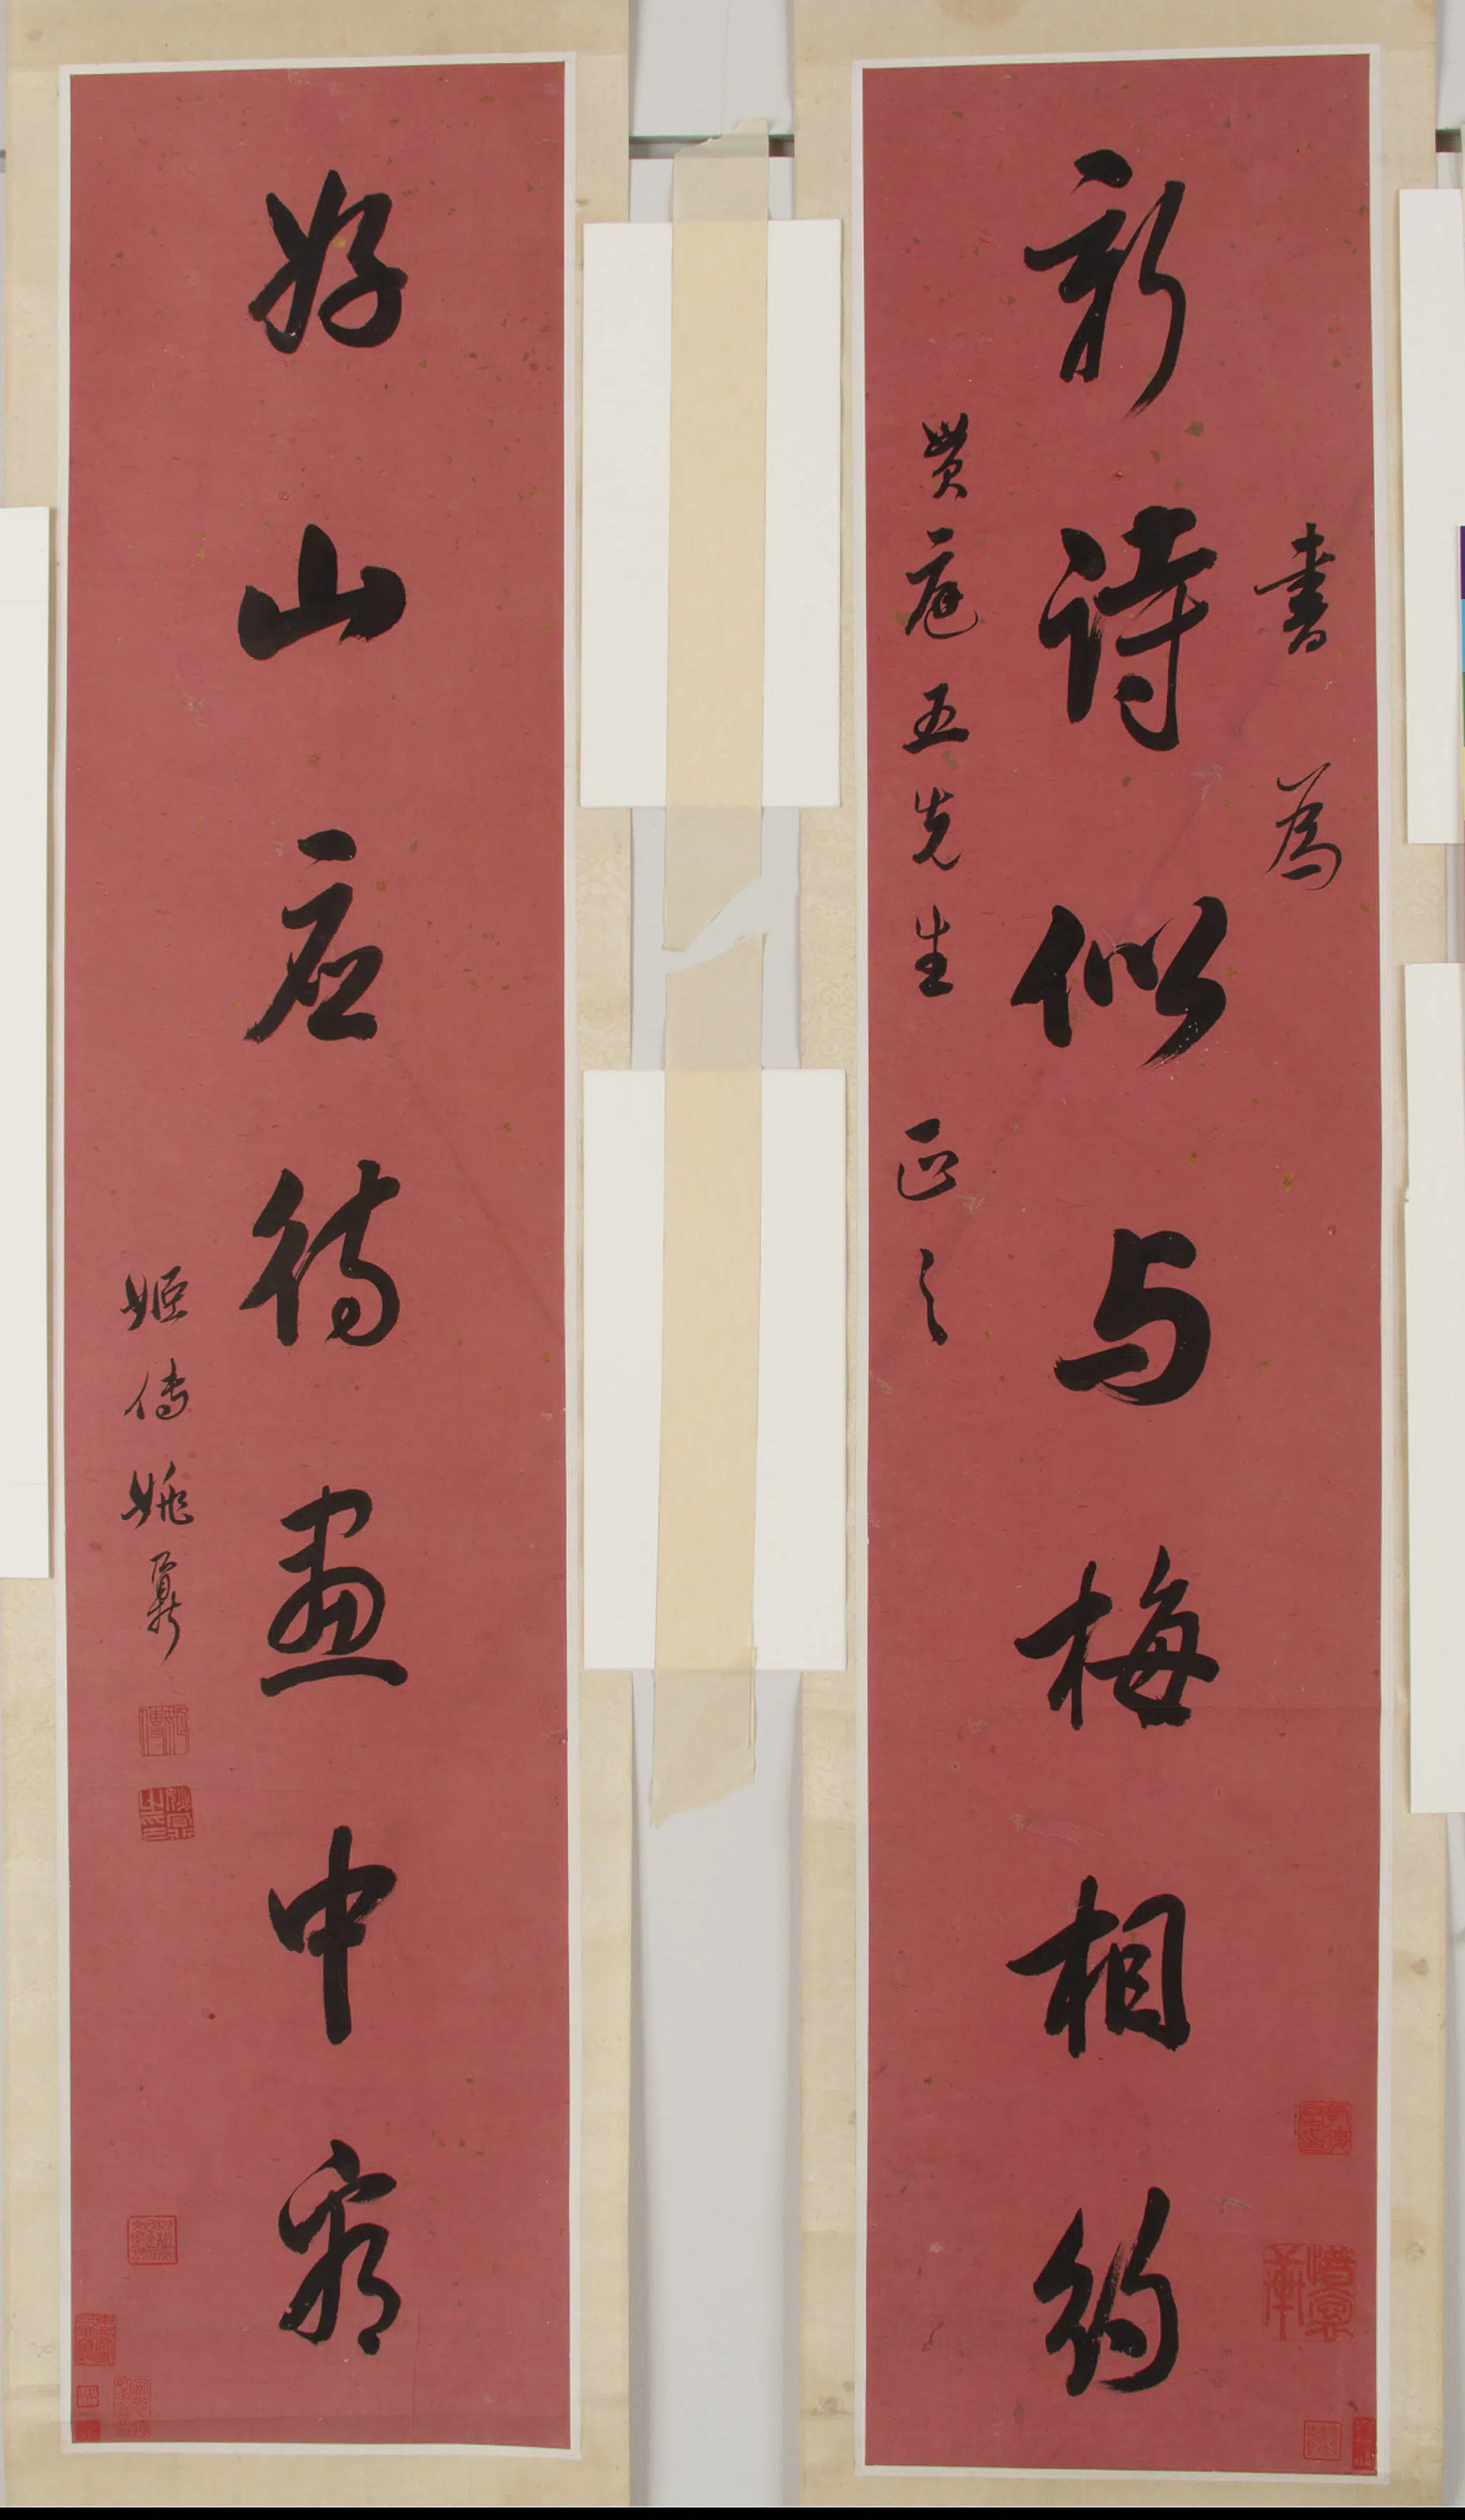 書為
新詩似与梅相約
庭五先生正之
好山应待畫中看
姬傳姚鼐